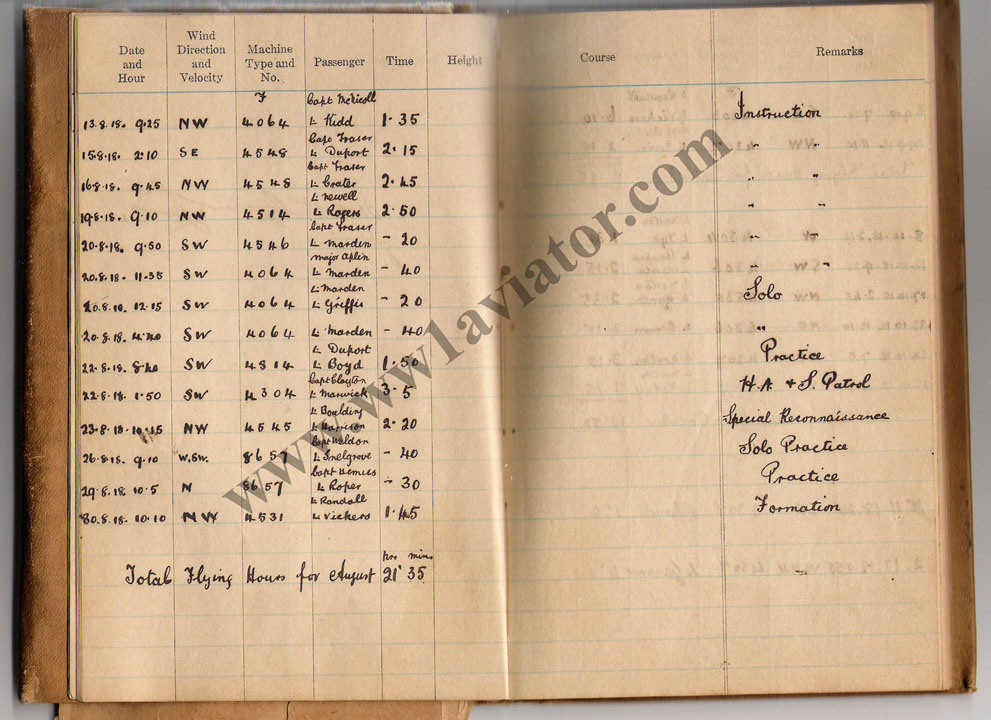 Date and Hour Wind Direction and Velocity Machine Type and No. Passenger Time Height Course Remarks
F Capt McNicoll
13.8.18. 9.25 NW 4064 Lt Kidd 1.35 Instruction
Capt Fraser
15.8.18. 2.10 SE 4548 Lt Duport 2.15 " "
Capt Fraser
16.8.18. 9.45 NW 4548 Lt Crater 2.45 " "
Lt Newell
19.8.18. 9.10 NW 4514 Lt Rogers 2.50 " "
Capt Fraser
20.8.18. 9.50 SW 4546 Lt Marden - 20 " "
Major Aplin
20.8.18. 11.35 SW 4064 Lt Marden - 40 " "
Lt Marden
20.8.18. 12.15 SW 4064 Lt Griffis - 20 Solo
20.8.18. 4.40 SW 4064 Lt Marden - 40 "
Lt Duport
22.8.18. 8.40 SW 4314 Lt Boyd 1.50 Practice
Capt Clayton
22.8.18. 1.50 SW 4304 Lt Marwick 3.5 H.A & S. Patrol
Lt Boulding
23.8.18 10.15 NW 4545 Lt Harrison 2.20 Special Reconnaissance
Capt Weldon
26.8.18. 9.10 W.SW. 8657 Lt Snelgrove - 40 Solo Practice
Capt Bemiss
29.8.18. 10.5 N 8657 Lt Roper - 30 Practice
Lt Randall
30.8.18. 10.10 NW 4531 Lt Vickers 1.45 Formation
hrs mins
Total Flying Hours for August 21' 35
www.1aviator.com